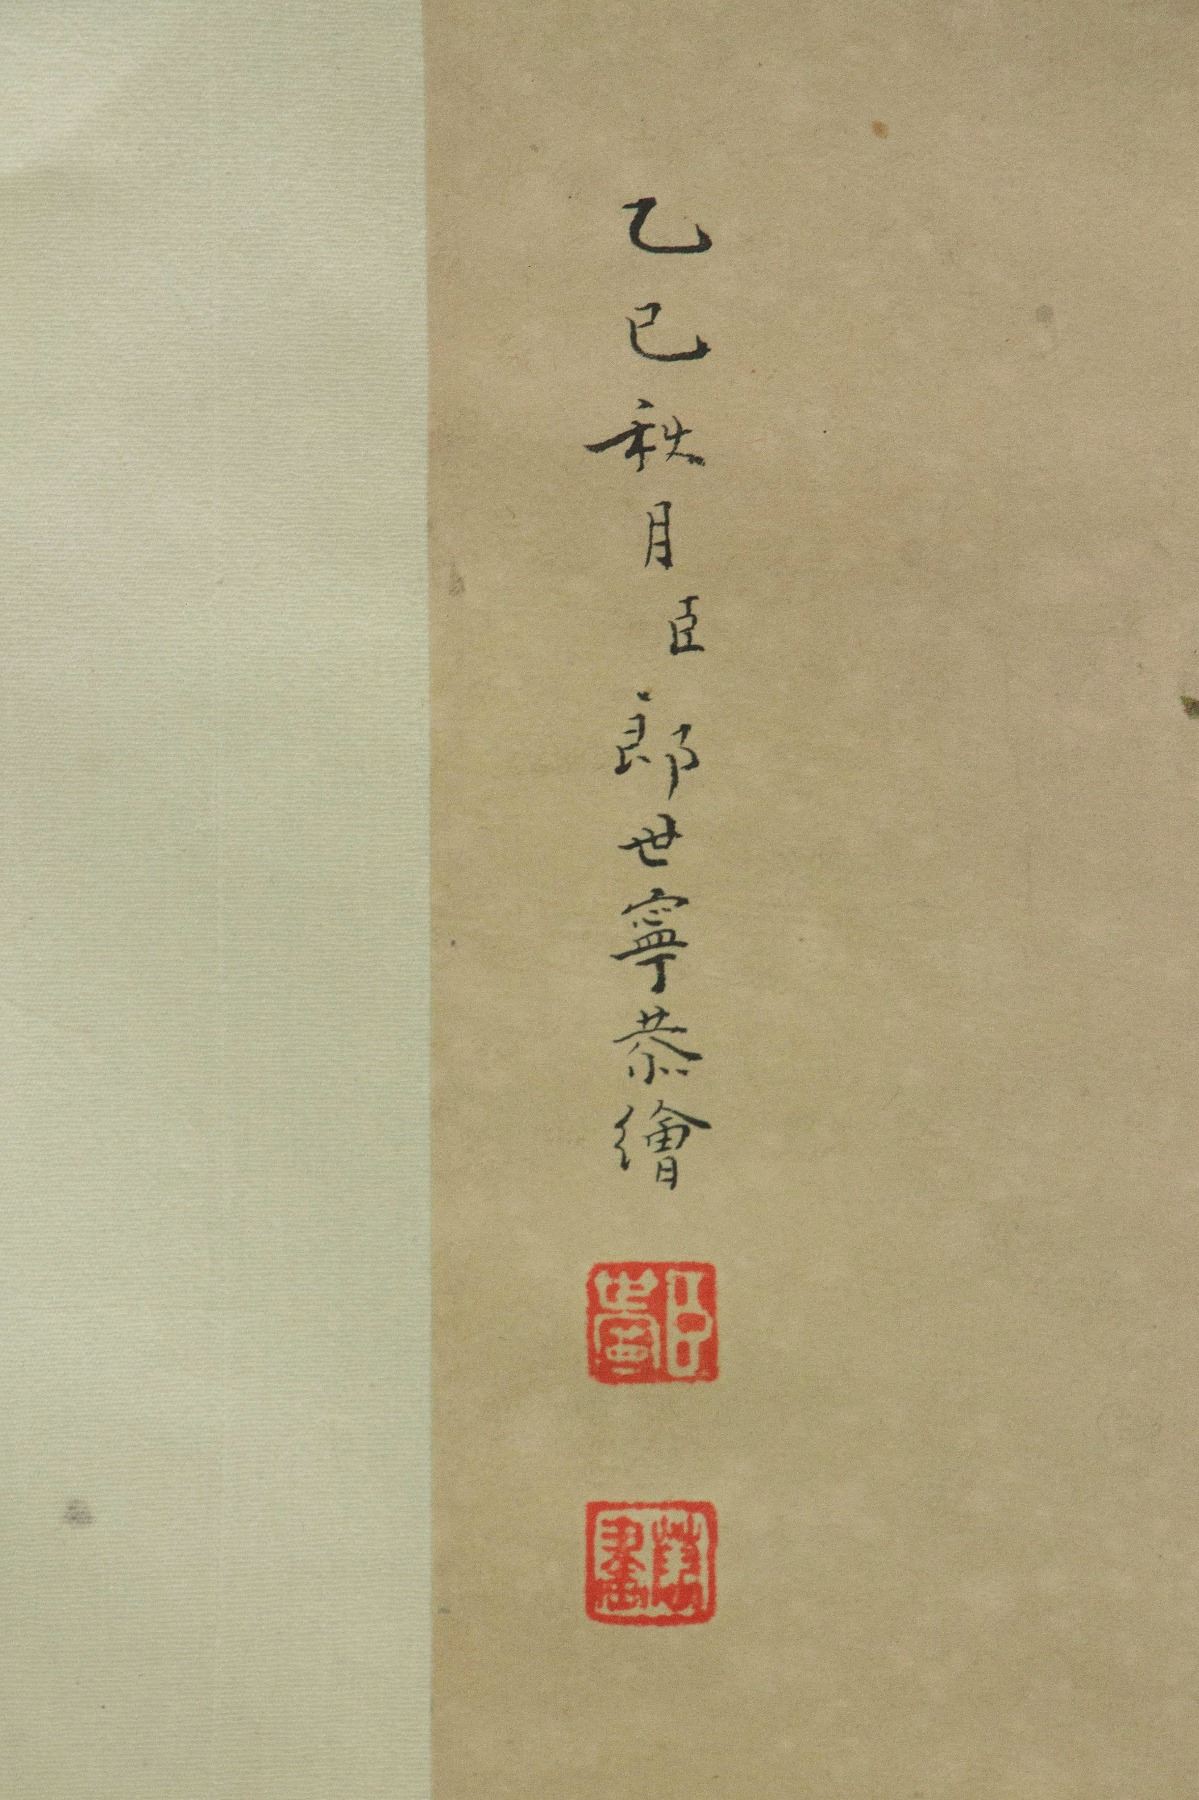 乙巳秋月臣郎世寧恭繪
臣世寧
恭畫